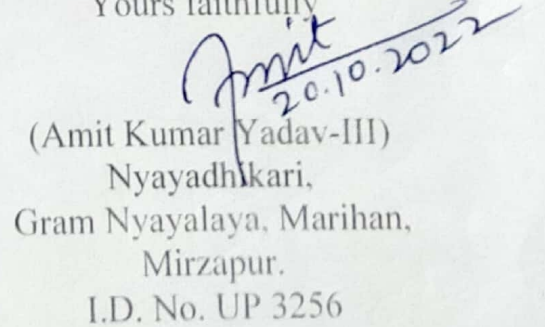 Yours faithfully
Amit
20.10.2022
(Amit Kumar Yadav-III)
Nyayadhikari,
Gram Nyayalaya, Marihan,
Mirzapur.
I.D. No. UP 3256